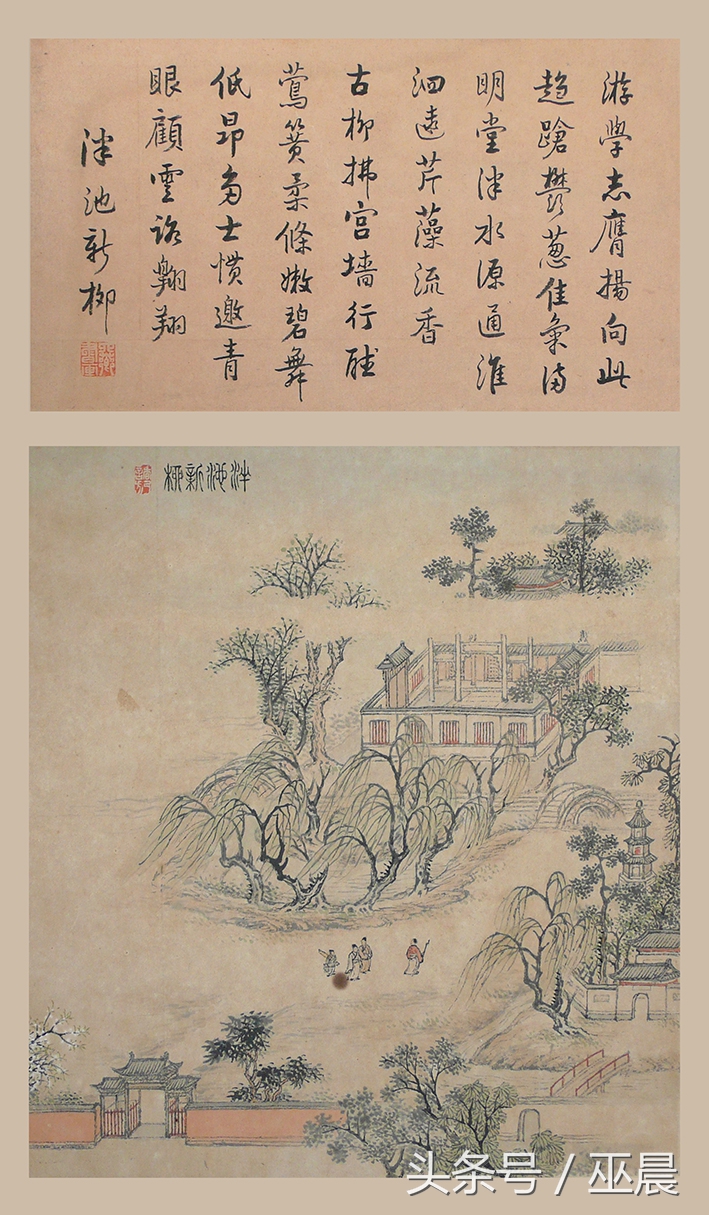 游學志膺揚向此
趋蹌鬱葱佳氣满
明堂泮水源通淮
泗遠芹藻流香
古柳拂宫墙行聽
鶯簧柔條嫩碧舞
低昂多士惯邀青
眼顧雲路翱翔
泮池新柳
泮池新柳
头条号 / 巫晨